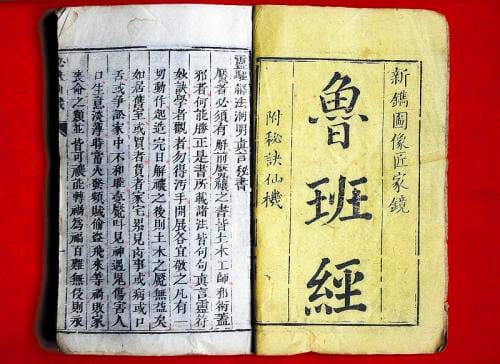 新鐫圖像匠家鏡
魯班經
附秘訣仙機
靈驅解法洞明真言秘書
魘者必須有解前魘禳之書皆土木工師邪術蓋
邪者何能勝正是書所載諸法皆句句真言靈符
妙訣學者觀者勿得污手開展各宜敬之凡有
動作起造完日解禳之後則土木之魘無益矣
如居舊室或買者賃者家宅累見凶事或病或口
舌或爭訟家中不和睡臺魘叫見神遇鬼傷害人
口生意淡薄時常火發賊偷盜飛來等禍敗家
喪命之類並皆可禳能轉禍為福百難無侵則永